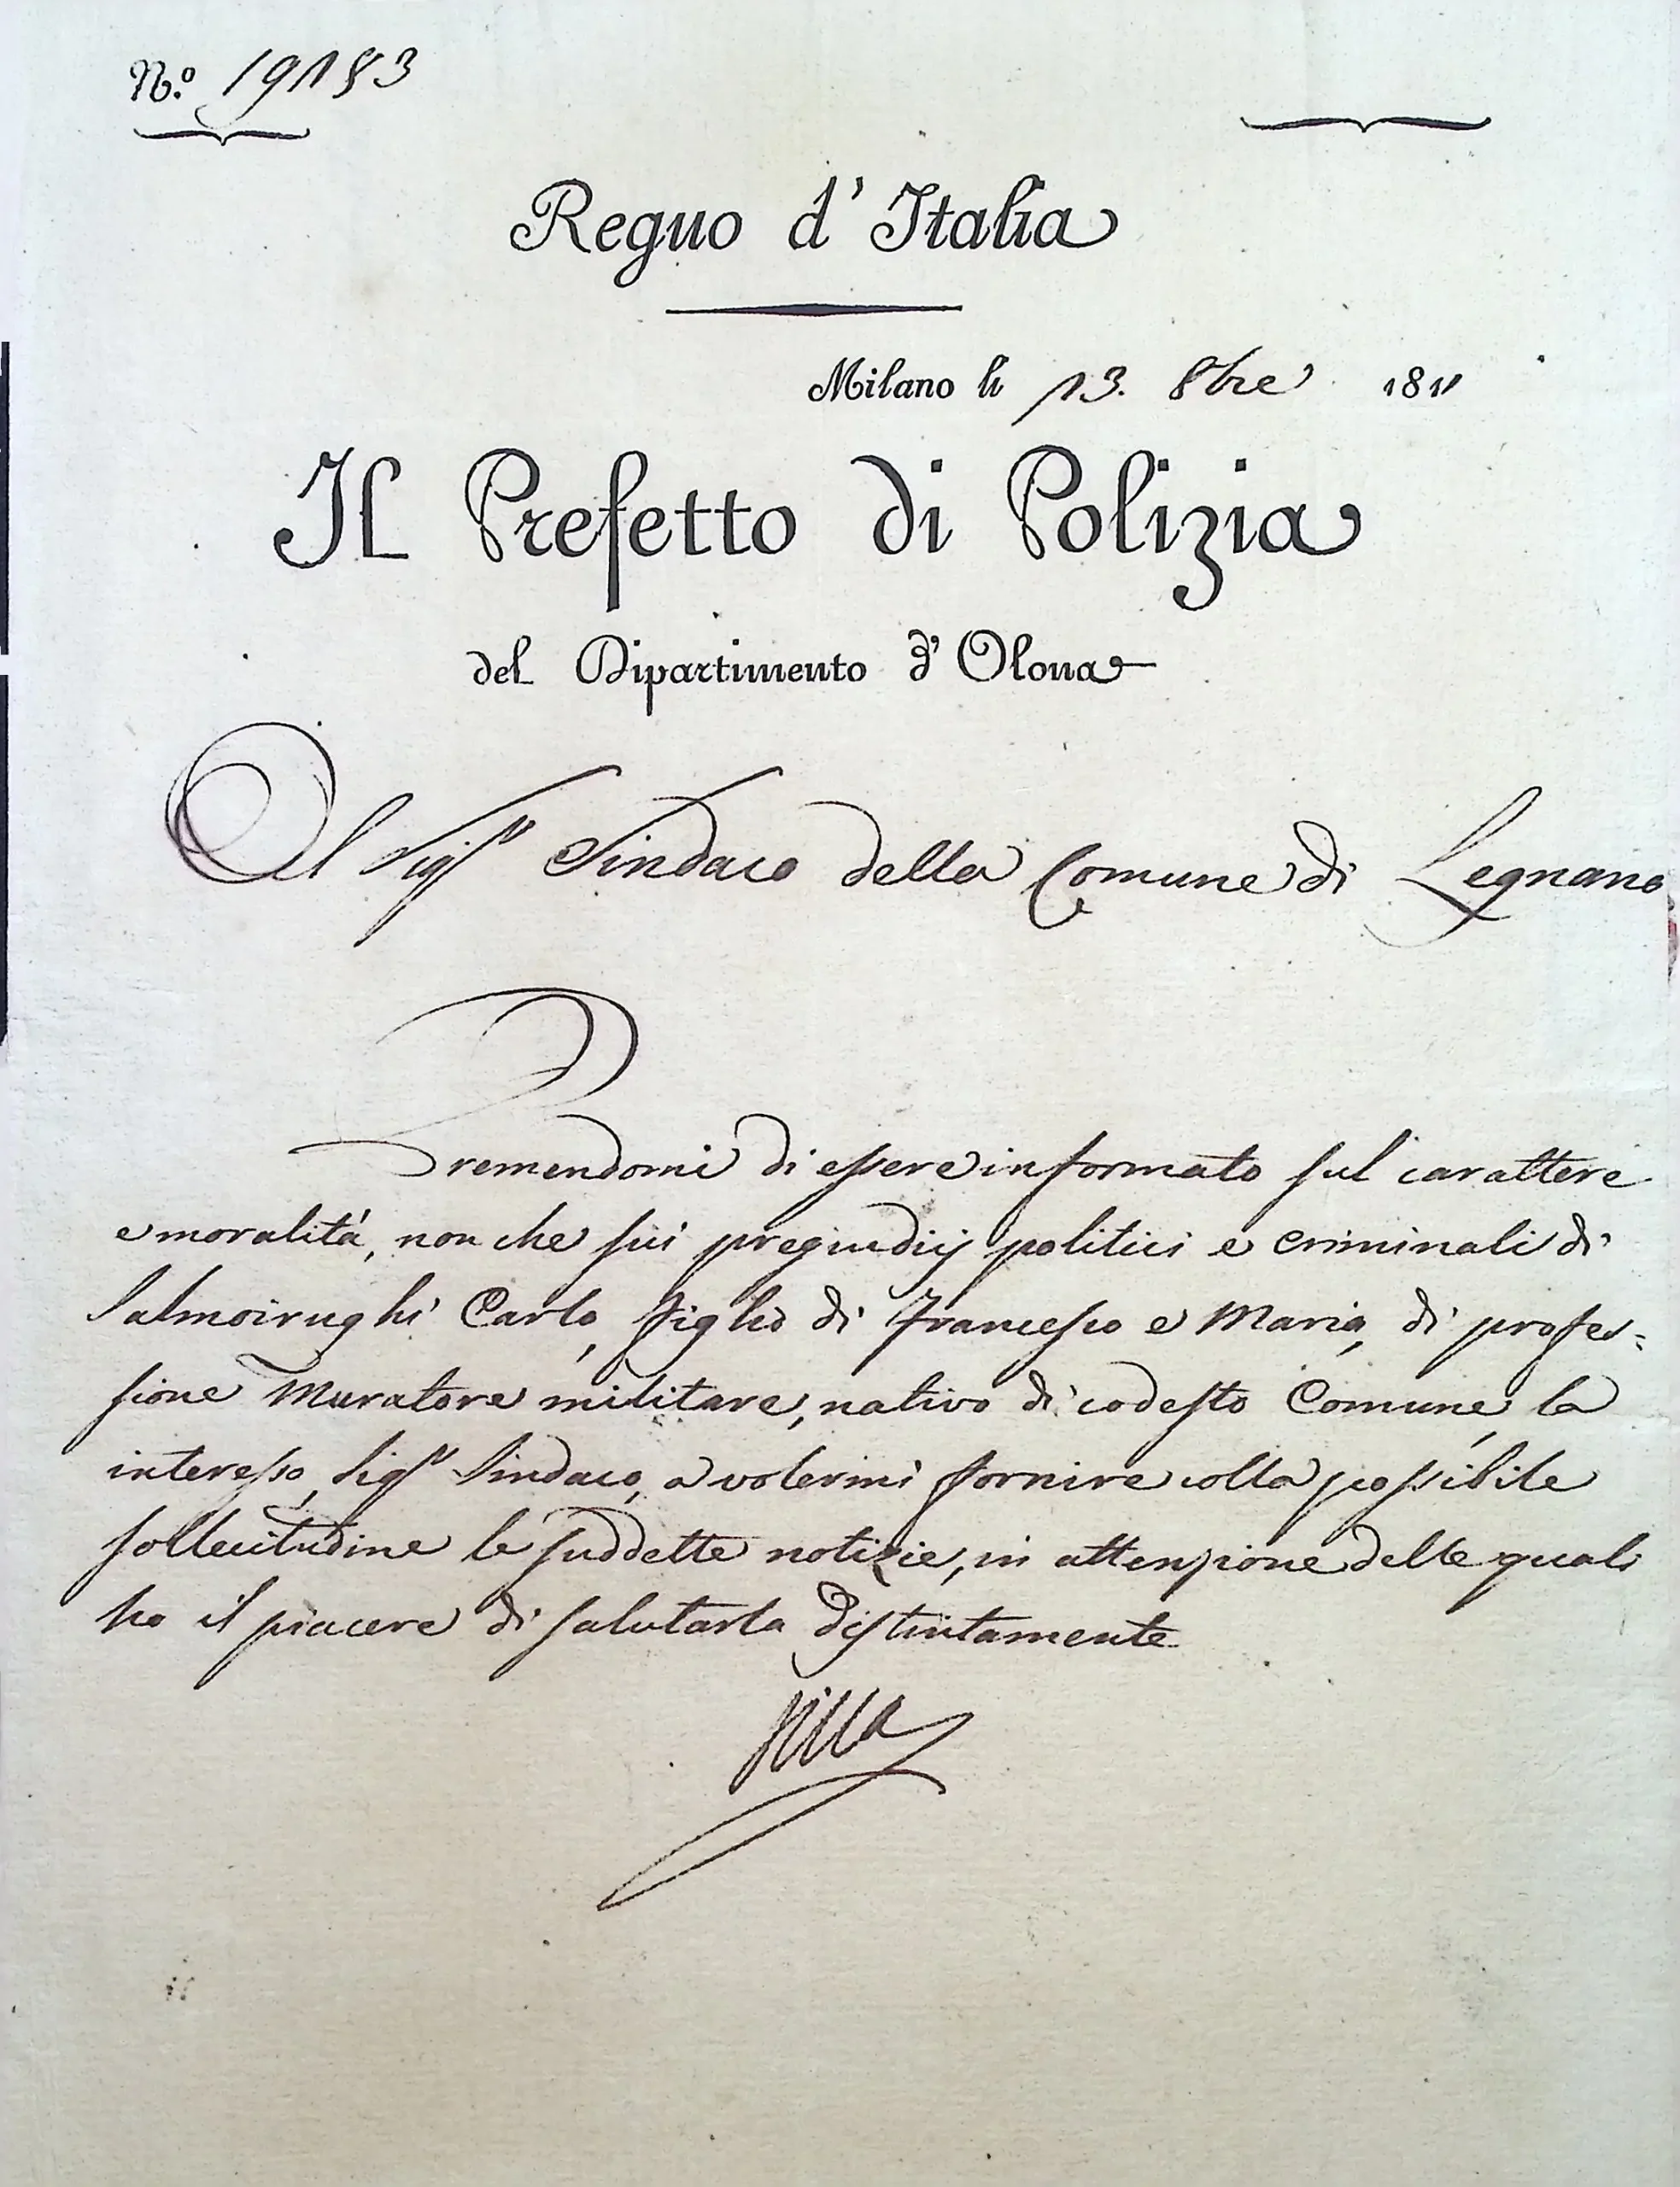 N.º 19183
Regno d'Italia
Milano li 13. 8bre 1811
Il Prefetto di Polizia
del Dipartimento d'Olona
Al Sig.r Sindaco della Comune di Legnano
Premendomi di essere informato sul carattere
e moralità, non che sui pregiudizj politici e criminali di
Salmoiraghi Carlo, figlio di Francesco e Maria, di profes=
sione Muratore militare, nativo di codesto Comune, la
interesso, Sig.r Sindaco, a volermi fornire colla possibile
sollecitudine le suddette notizie, in attenzione delle quali
ho il piacere di salutarla distintamente
Villa